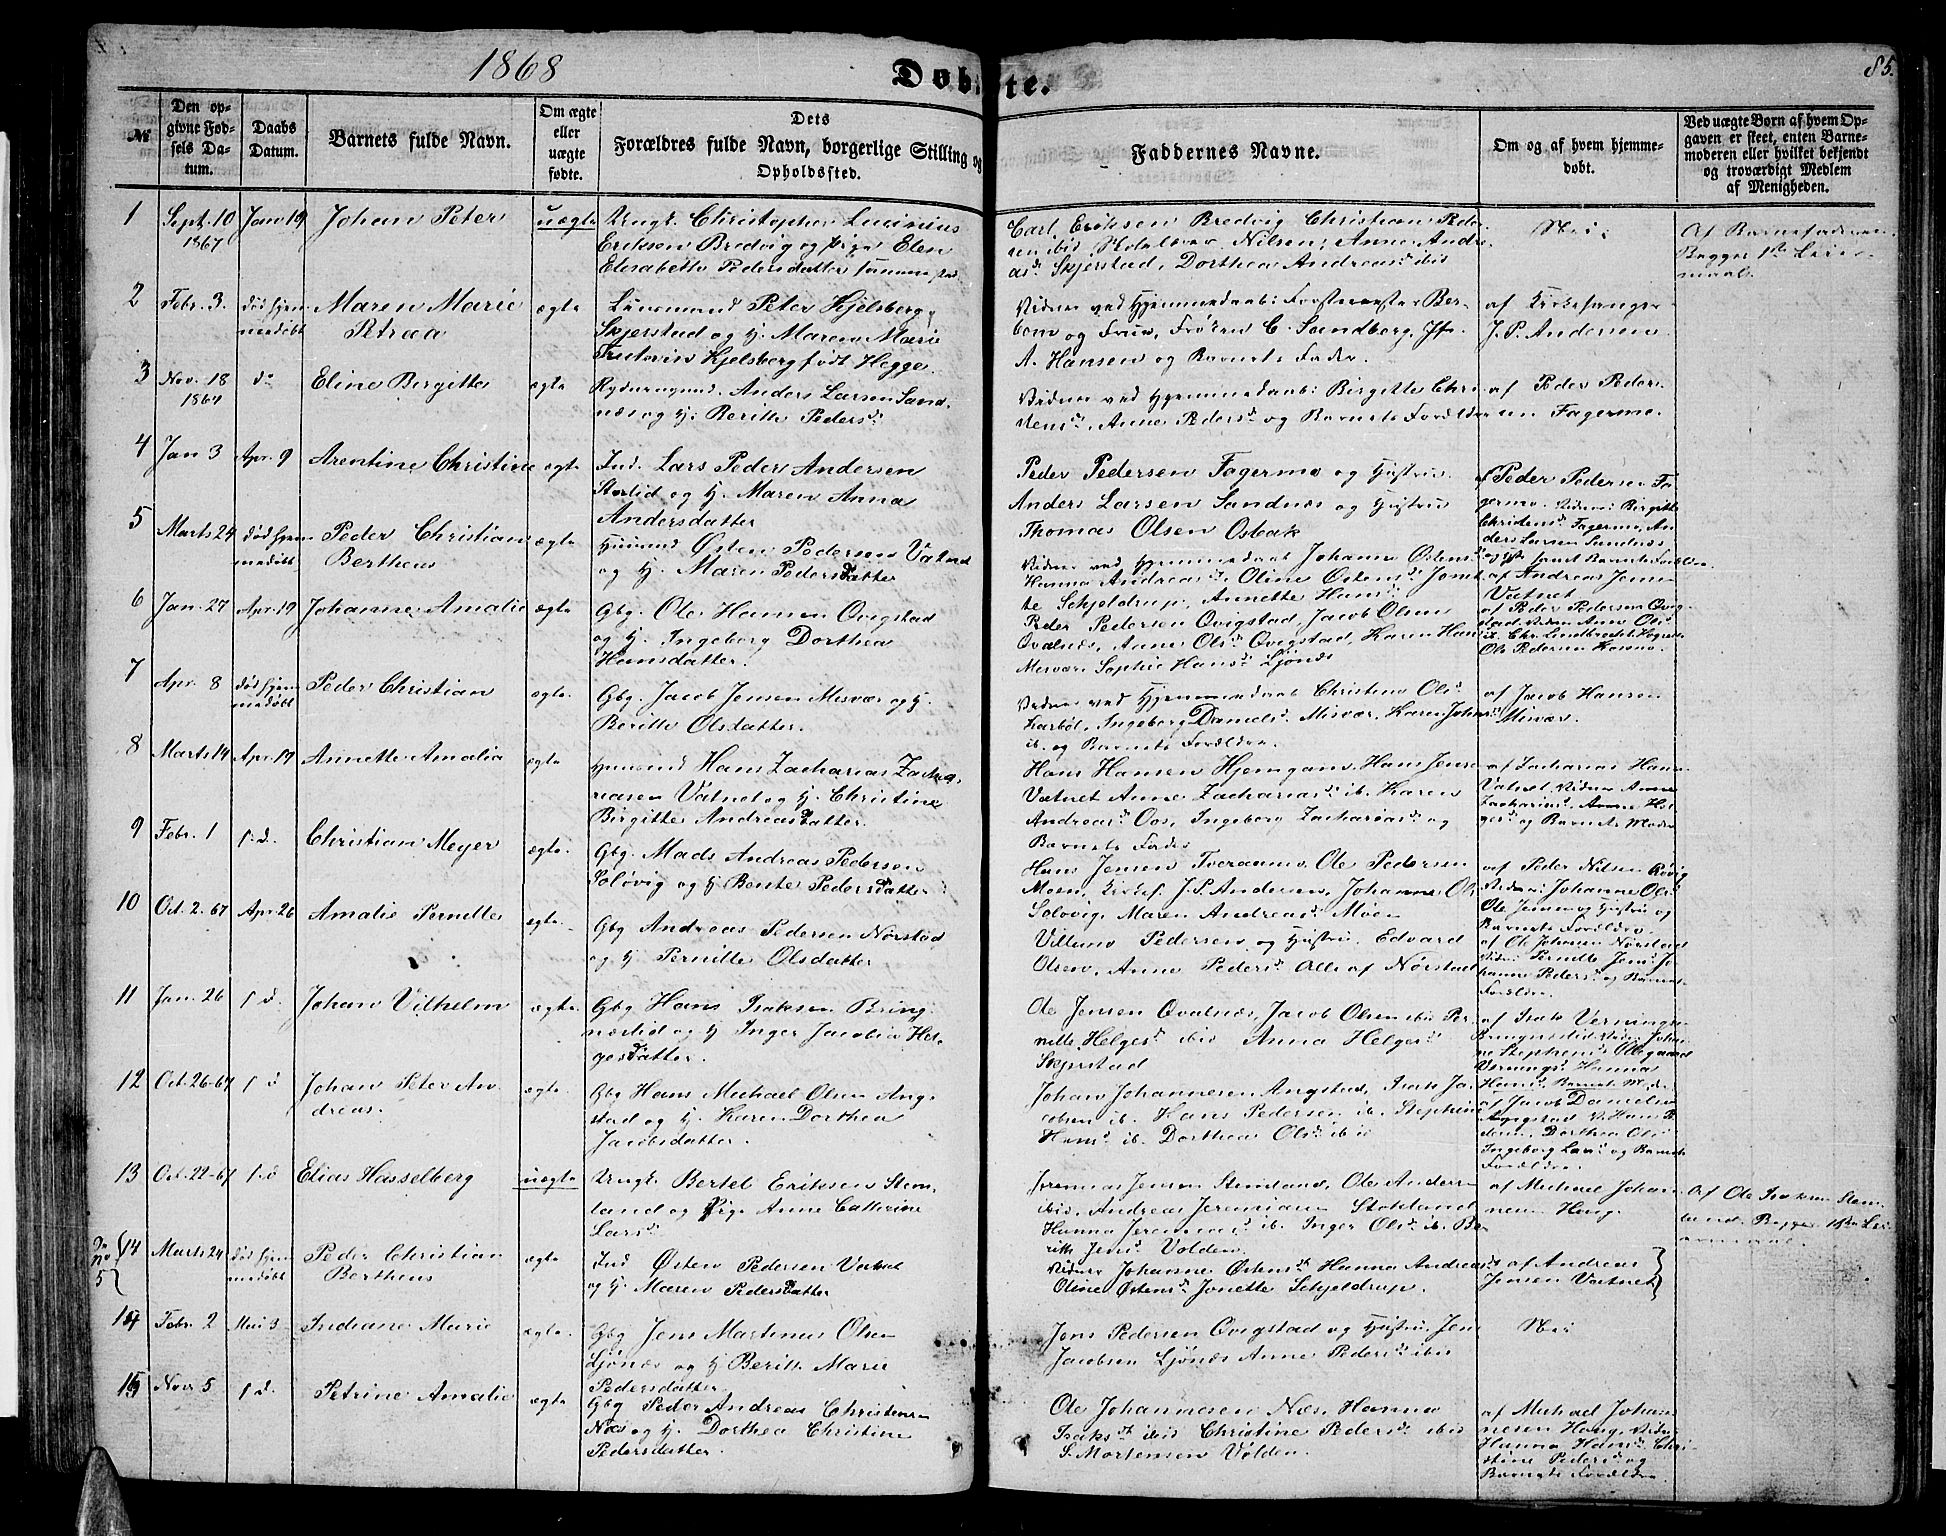 1868
Døbte.
85.
№
Den opgivne Fødsels Datum.
Daabs Datum.
Barnets fulde Navn.
Om ægte eller uægte fødte.
Dets Forældres fulde Navn, borgerlige Stilling og Opholdssted.
Faddernes Navne.
Om og af hvem hjemmedøbt.
Ved uægte Børn af hvem Opgaven er skeet, enten Barnemoderen eller hvilket bekjendt og troværdigt Medlem af Menigheden.
1 Sept. 10 1867 Jan 19 Johan Peter uægte
Ungk. Christopher
Eriksen Bredvig og Pige Elen
Elisabeth Pedersdatter
Carl Eriksen Bredvig Christian
Nilsen, Anne
Skjerstad, Dorthea Andreasd ibid
Nei
Af Barnefaderen
Begges 1ste
2 Febr. 3. død hjemmedøbt Maren Marie Petrea ægte
Lensmand Peter Hjelsberg
Skjerstad og H. Maren Marie
Hjelsberg født Hegge
Vidner ved Hjemmedaab: Forstmester
og Frue, Frøken C. Sandberg, Jfr.
A. Hansen og Barnets Fader.
af Kirkesanger
J. P. Andersen
3 Nov. 18 1864 do Eline Birgitte ægte
Anders Larsen Sandnæs
og H. Beritte Pedersd
Vidner ved Hjemmedaab: Birgitte
Anne Pedersd og Barnets Forældre
af Peder Pedersen
Fagermo.
4 Jan 3 Apr. 9 Arentine Christine ægte
Ind. Lars Peder Andersen
Storlid og H. Maren Anna
Andersdatter
Peder Pedersen Fagermo og Hustru
Anders Larsen Sandnæs og Hustru
Thomas Olsen Osbak
af Peder Pedersen Fagermo
Vidner: Birgitte
Fagermo, Anders
Larsen Sandnæs
5 Marts 24 død hjemmedøbt Peder Christian Bertheus ægte
Huusmd Østen Pedersen Vatnet
og H. Maren Pedersdatter
Vidner ved Hjemmedaab Johanne Østensd
Hanna Andreasd Oline Østensd Jonette
Schjeldrup, Annette Hansd
af Andreas Jensen
Vatnet
6 Jan. 27 Apr. 19 Johanne Amalie ægte
Gbg. Ole Hansen Qvigstad
og H. Ingeborg Dorthea
Hansdatter.
Peder Pedersen Qvigstad, Jacob Olsen
Qvalnæs, Anne Olsd Qvigstad, Karen
Misvær, Sophie Hansd Ljønes
af Peder Pedersen Qvigstad
Ole Pedersen
7 Apr. 8 død hjemmedøbt Peder Christian ægte
Gbg. Jacob Jensen Misvær og H.
Beritte Olsdatter.
Vidner ved Hjemmedaab Christine Olsd
Karbøl, Ingeborg Danielsd Misvær, Karen
ib. og Barnets Forældre.
af Jacob Hansen
Misvær.
8 Marts 14 Apr. 19 Annette Amalia ægte
Huusmd Hans Zacharias Zachariasen
Vatnet og H. Christine
Birgitte Andreasdatter.
Hans Hansen Hjemgam, Hans Jensen
Vatnet Anne Zachariasd ib. Karen
Andreasd Oos, Ingeborg Zachariasd og
Barnets Fader
af Zacharias Hansen
Vatnet, Vidner Anne
Zachariasd,
og Barnets Moder
9 Febr. 1 s. d. Christian Meyer ægte
Gbg. Mads Andreas Pedersen
Soløvig og H Bente Pedersdatter
Hans Jensen Tveraamo, Ole Pedersen
Moen, Kirkes. J. P. Andersen, Johanne
Soløvig, Maren Andreasd Moen
af Peder Nilsen
Vidner: Johanne Olsd
Ole Jensen og Hustru og
Barnets Forældre
10 Oct. 2. 67 Apr. 26 Amalie Pernille ægte
Gbg Andreas Pedersen Nørstad
og H Pernille Olsdatter
Villum Pedersen og Hustru, Edvard
Olsen, Anne Pedersd Alle af Nørstad
af Ole Johansen Nørstad
Vidner Pernille Jensd
Pedersd og Barnets
Forældre.
11 Jan. 26 s. d. Johan Vilhelm ægte
Gbg Hans Isaksen Bringnæslid
og H Inger Jacobia Helgesdatter.
Ole Jensen Qvalnæs, Jacob Olsen ibid Pernille
Helgesd ibid Anna Helgesd
Skjerstad
af Isak
12 Oct. 26-67 s. d Johan Peter Andreas. ægte
Gbg Hans Michael Olsen Angstad
og H. Karen Dorthea
Jacobsdatter.
Johan Johannesen Angstad, Isak Jacobsen
ib. Hans Pedersen ib. Stephine
Hansd ib. Dorthea Olsd ibid
af Jacob Danielsen
Angstad
Dorthea Olsd
Ingeborg Larsd og Barnets
Forældre.
13 Oct. 22-67 s. d Elias Hasselberg uægte
Ungk. Bertel Eriksen Stemland
og Pige Anne Cathrine
Larsd
Jeremias Jensen Stemland, Ole Andersen
ibid, Andreas Jeremiasen Stokland
Hanna Jeremiasd ib. Inger Olsd ib.
Jensd Volden.
af Michael Johannesen
Haug.
Af Ole Isaksen
14 Marts 24 død hjemmedøbt Peder Christian Bertheus ægte
Ind Østen Pedersen Vatnet
og H. Maren Pedersdatter
Vidner Johanne Østensd Hanna Andreasd
Oline Østensd Jonette Schjeldrup.
af Andreas
Jensen Vatnet
No 5
14 Febr. 2 Mai 3 Indiane Marie ægte
Gbg Jens Martinus Olsen
Ljønæs og H Berith Marie
Pedersdatter
Jens Pedersen Qvigstad og Hustru, Jens
Jacobsen Ljønæs Anne Pedersd ibid
Nei
15 Novr 5 s. d. Petrine Amalie ægte
Gbg Peder Andreas Christensen
Næs og H. Dorthea Christine
Pedersdatter.
Ole Johannesen Næs, Hanna
Isaksd ibid Christine Pedersd ibid
S. Mortensen Volden.
af Michael Johannesen
Haug, Vidner
Hanna Hansd, Christine
Pedersd og
Barnets Forældre.